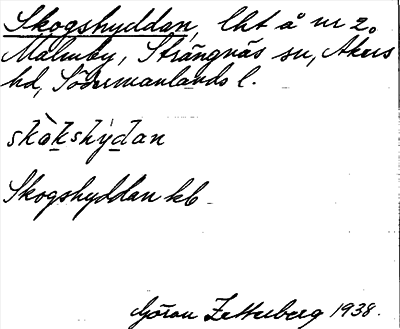 Skogshyddan, lht å nr 2
Malmby, Strängnäs sn, Åkers
hd, Södermanlands l.
skò̱kshy̍dan
Skogshyddan kb
Göran Zetterberg 1938.